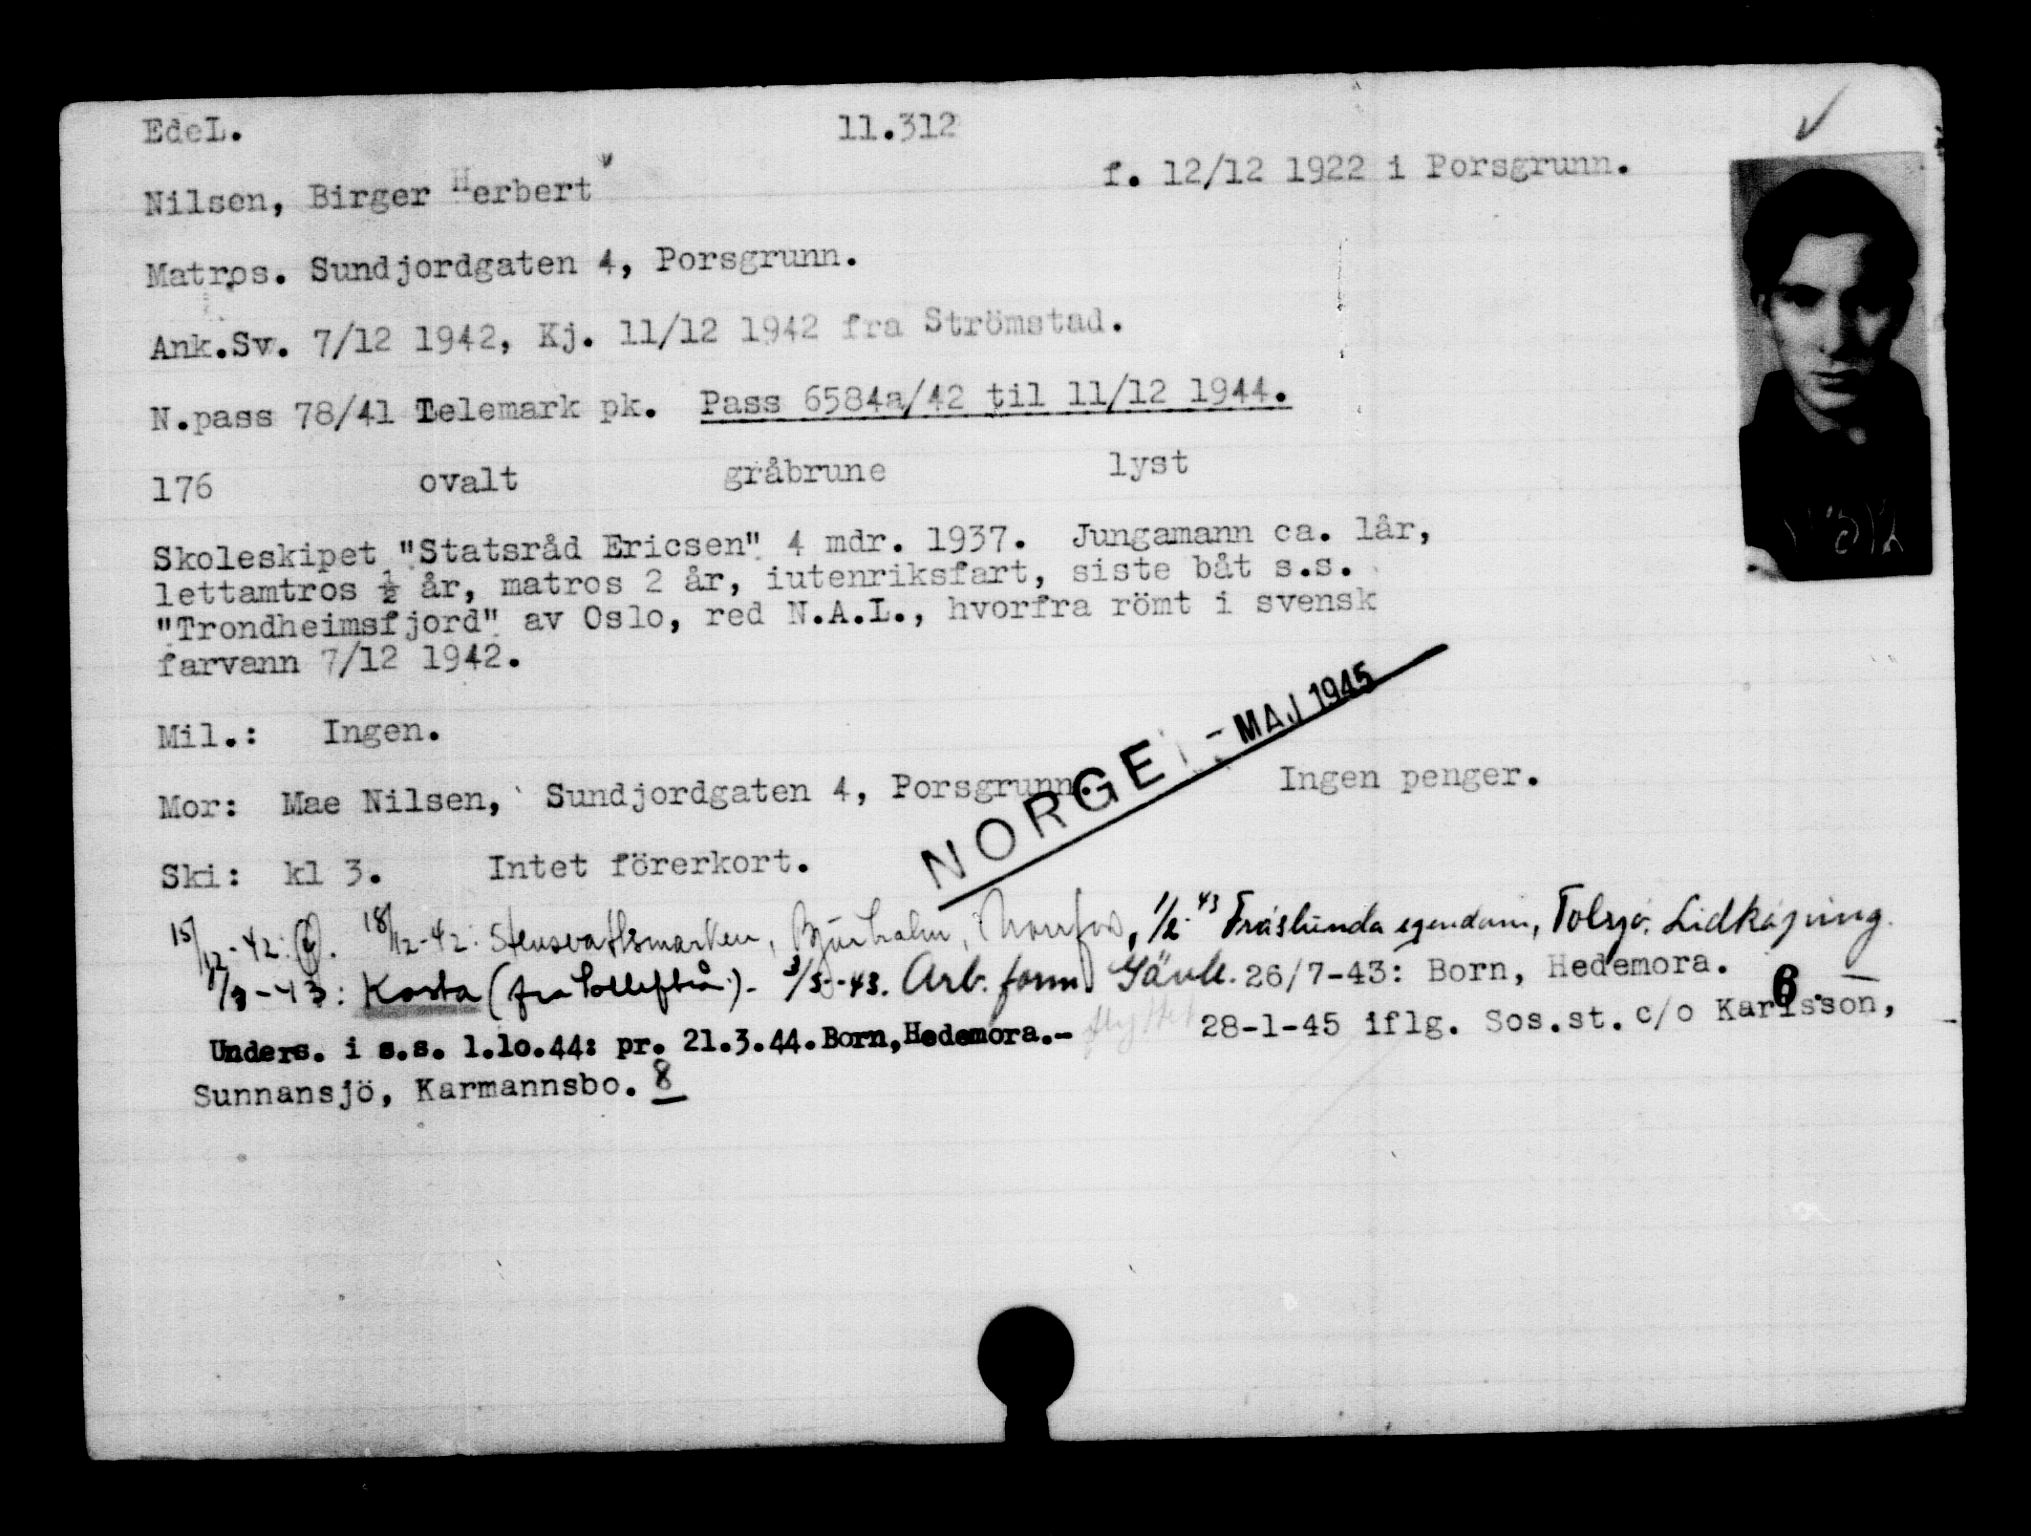 EdeL. 11.312
Nilsen, Birger Herbert f. 12/12 1922 i Porsgrunn.
Matros. Sundjordgaten 4, Porsgrunn.
Ank.Sv. 7/12 1942, Kj. 11/12 1942 fra Strömstad.
N.pass 78/41 Telemark pk. Pass 6584a/42 til 11/12 1944.
176 ovalt gråbrune lyst
Skoleskipet "Statsråd Ericsen" 4 mdr. 1937. Jungamann ca. 1år,
lettamtros ½ år, matros 2 år, iutenriksfart, siste båt s.s.
"Trondheimsfjord" av Oslo, red N.A.L., hvorfra römt i svensk
farvann 7/12 1942.
NORGE - MAJ 1945
Mil.: Ingen.
Mor: Mae Nilsen, Sundjordgaten 4, Porsgrunn. Ingen penger.
Ski: kl 3. Intet förerkort.
15/12-42: 18/12-42: Bjurholm, 1/2-43 Fräslunda egendom, Lidköping.
Kosta (fra Sollefteå). 3/5-43. Arb. form. Gävle. 26/7-43: Born, Hedemora. 6
Unders. i s.s. 1.10.44: pr. 21.3.44. Born, Hedemora.- flyttet 28-1-45 iflg. Sos.st. c/o Karlsson,
Sunnansjö, Karmannsbo. 8